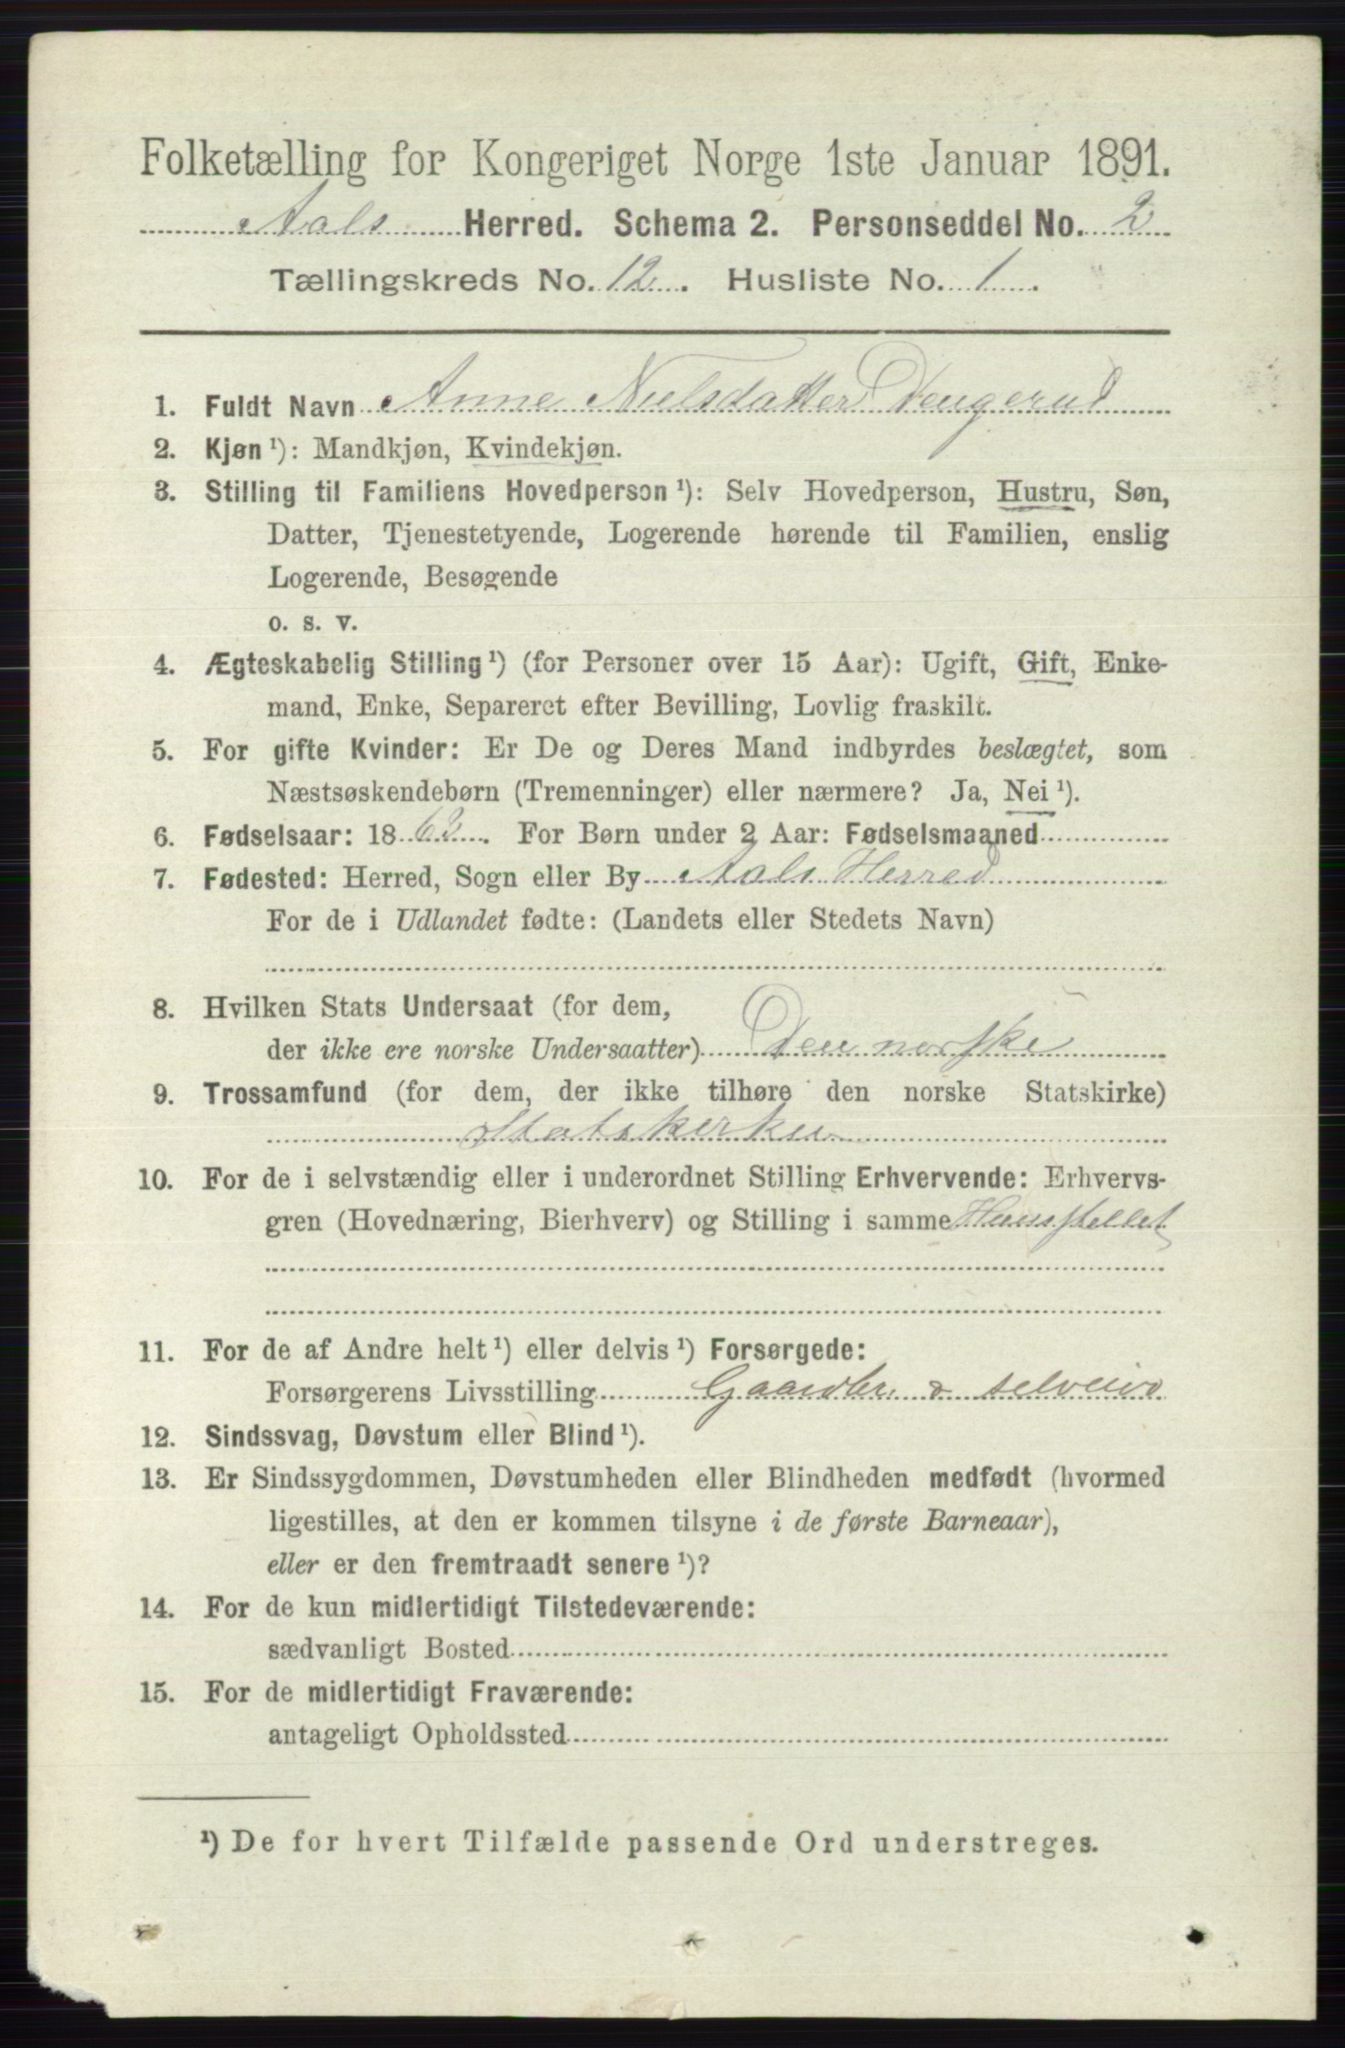 Folketælling for Kongeriget Norge 1ste Januar 1891.
Aals Herred. Schema 2. Personseddel No. 2
Tællingskreds No. 12. Husliste No. 1.
1. Fuldt Navn Anne Nielsdatter Dengerud
2. Kjøn ¹): Mandkjøn, Kvindekjøn.
3. Stilling til Familiens Hovedperson ¹): Selv Hovedperson, Hustru, Søn,
Datter, Tjenestetyende, Logerende hørende til Familien, enslig
Logerende, Besøgende
o. s. v.
4. Ægteskabelig Stilling ¹) (for Personer over 15 Aar): Ugift, Gift, Enke-
mand, Enke, Separeret efter Bevilling, Lovlig fraskilt.
5. For gifte Kvinder: Er De og Deres Mand indbyrdes beslægtet, som
Næstsøskendebørn (Tremenninger) eller nærmere? Ja, Nei ¹).
6. Fødselsaar: 1863. For Børn under 2 Aar: Fødselsmaaned
7. Fødested: Herred, Sogn eller By Aals Herred
For de i Udlandet fødte: (Landets eller Stedets Navn)
8. Hvilken Stats Undersaat (for dem,
der ikke ere norske Undersaatter) Den norske
9. Trossamfund (for dem, der ikke tilhøre den norske Statskirke)
Statskerken
10. For de i selvstændig eller i underordnet Stilling Erhvervende: Erhvervs-
gren (Hovednæring, Bierhverv) og Stilling i samme Husstellet
11. For de af Andre helt ¹) eller delvis ¹) Forsørgede:
Forsørgerens Livsstilling Gaardbr. & selveier
12. Sindssvag, Døvstum eller Blind ¹).
13. Er Sindssygdommen, Døvstumheden eller Blindheden medfødt (hvormed
ligestilles, at den er kommen tilsyne i de første Barneaar),
eller er den fremtraadt senere ¹)?
14. For de kun midlertidigt Tilstedeværende:
sædvanligt Bosted
15. For de midlertidigt Fraværende:
antageligt Opholdssted
¹) De for hvert Tilfælde passende Ord understreges.